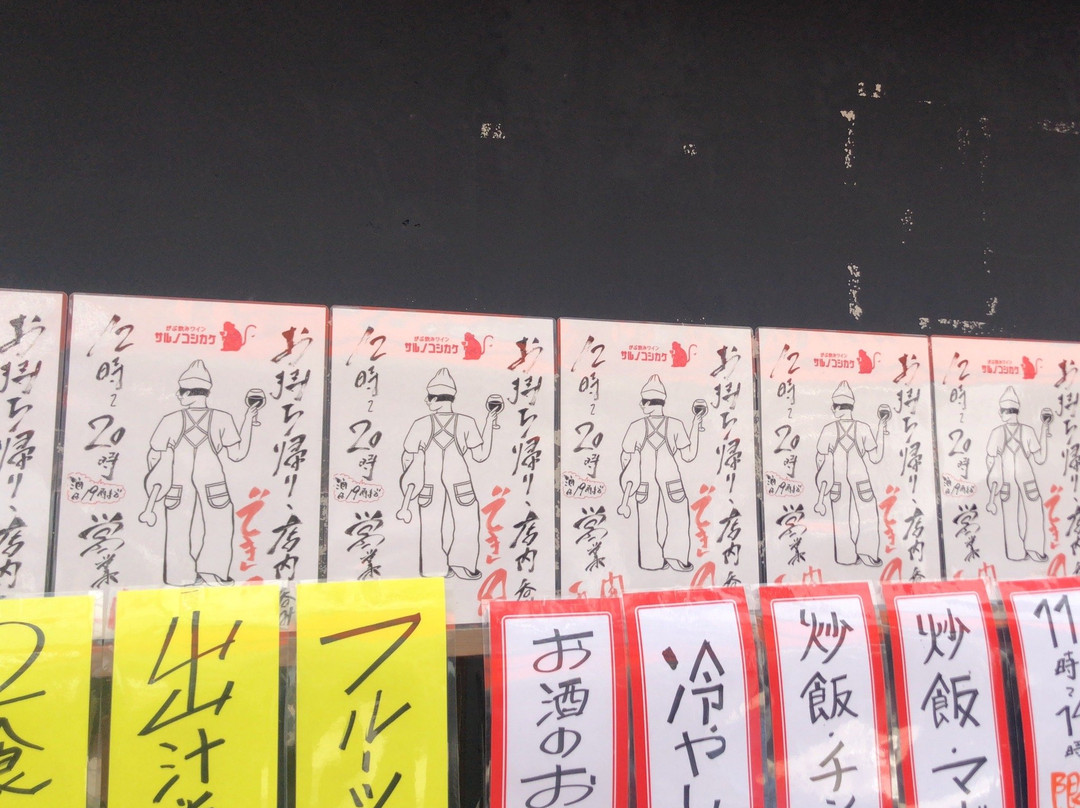 お持ち帰り、店内
がぶ飲みワイン
サルノコシカケ
お持ち帰り、店内
12時〜20時
営業
でき
がぶ飲みワイン
サルノコシカケ
お持ち帰り、店内
12時〜20時
営業
でき
がぶ飲みワイン
サルノコシカケ
お持ち帰り、店内
12時〜20時
営業
でき
がぶ飲みワイン
サルノコシカケ
お持ち帰り、店内
12時〜20時
営業
でき
がぶ飲みワイン
サルノコシカケ
お持ち帰り、店内
12時〜20時
営業
でき
出汁
フルーツ
お酒のお
冷やし
炒飯・チ
炒飯・マ
11時〜14時